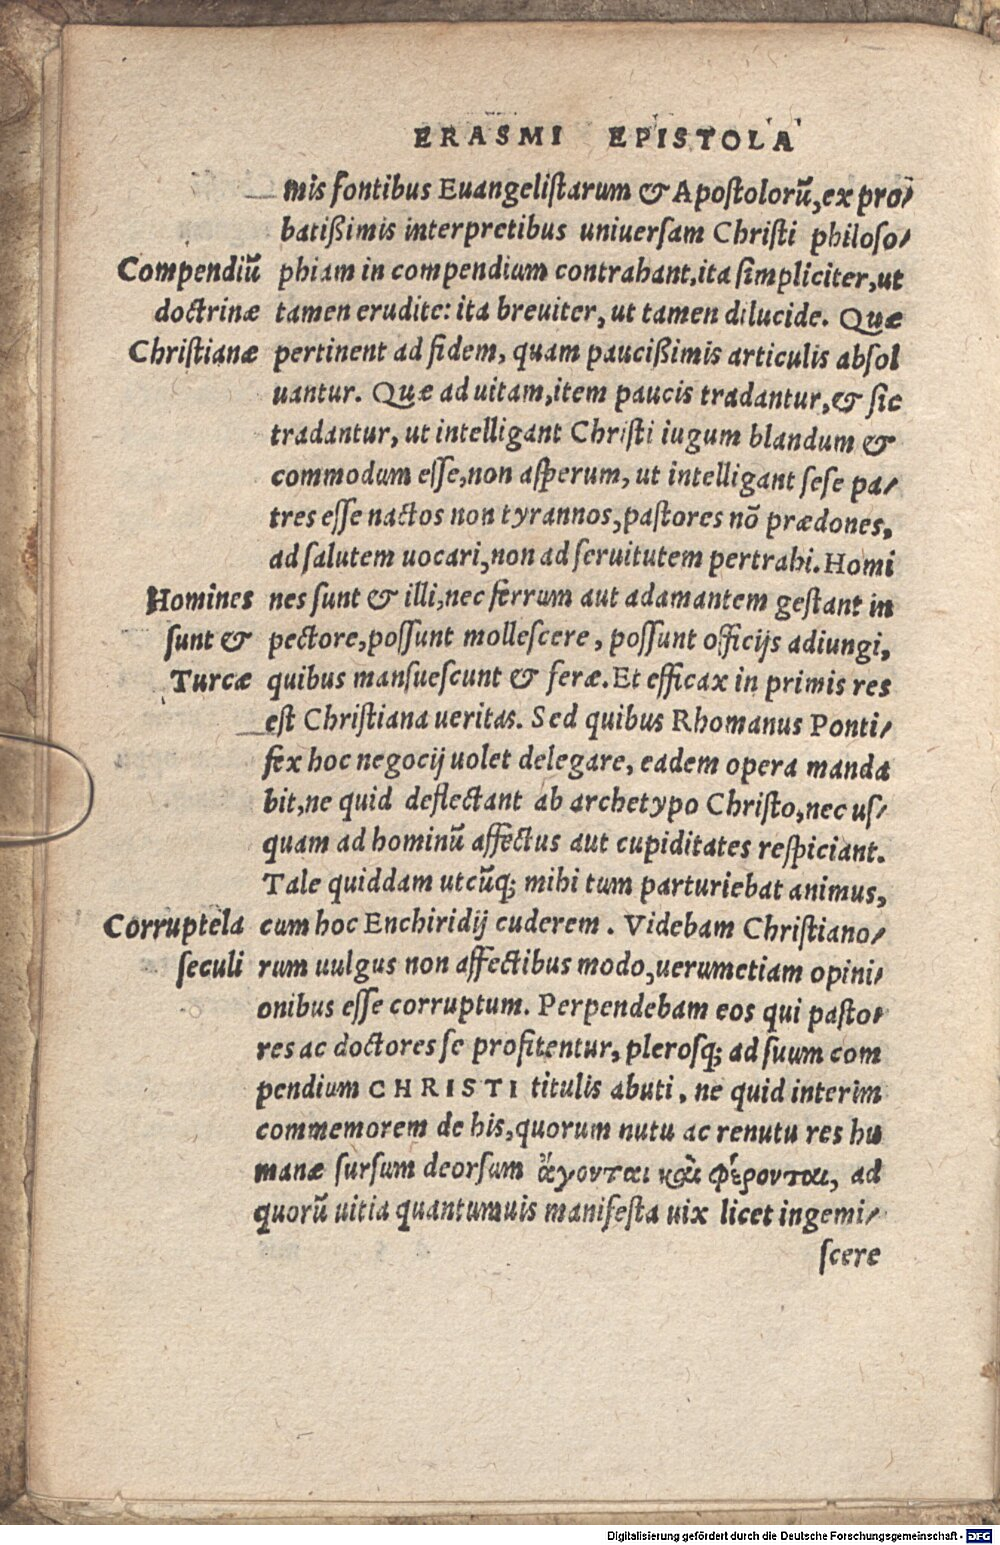 ERASMI EPISTOLA
mis fontibus Euangelistarum & Apostolorũ, ex pro/
batißimis interpretibus uniuersam Christi philoso/
Compendiũ
phiam in compendium contrahant, ita simpliciter, ut
doctrinæ
tamen erudite: ita breuiter, ut tamen dilucide. Quæ
Christianæ
pertinent ad fidem, quam paucißimis articulis absol
uantur. Quæ ad uitam, item paucis tradantur, & sic
tradantur, ut intelligant Christi iugum blandum &
commodum esse, non asperum, ut intelligant sese pa/
tres esse nactos non tyrannos, pastores nõ prædones,
ad salutem uocari, non ad seruitutem pertrahi. Homi
Homines
nes sunt & illi, nec ferrum aut adamantem gestant in
sunt &
pectore, possunt mollescere, possunt officijs adiungi,
Turcæ
quibus mansuescunt & feræ. Et efficax in primis res
est Christiana ueritas. Sed quibus Rhomanus Ponti/
fex hoc negocij uolet delegare, eadem opera manda
bit, ne quid deflectant ab archetypo Christo, nec us/
quam ad hominũ affectus aut cupiditates respiciant.
Tale quiddam utcũq; mihi tum parturiebat animus,
Corruptela
cum hoc Enchiridij cuderem. Videbam Christiano/
seculi
rum uulgus non affectibus modo, uerumetiam opini/
onibus esse corruptum. Perpendebam eos qui pasto/
res ac doctores se profitentur, plerosq; ad suum com
pendium CHRISTI titulis abuti, ne quid interim
commemorem de his, quorum nutu ac renutu res hu
manæ sursum deorsum ἄγονται καὶ φέρονται, ad
quorũ uitia quantumuis manifesta uix licet ingemi/
scere
Digitalisierung gefördert durch die Deutsche Forschungsgemeinschaft - DFG